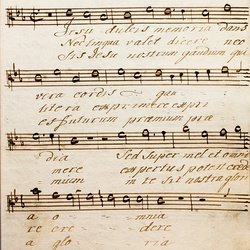 Jesu dulcis memoria dans
Nec lingua valet dicere nec
Sis Jesu nostrum gaudium qui
vera cordis gau
litera exprimere expri
es futurum præmium præ
dia Sed super mel et omni
mere expertus potest cred
mium in te sit nostra glori
a o mnia
re ere dere
a glo ria